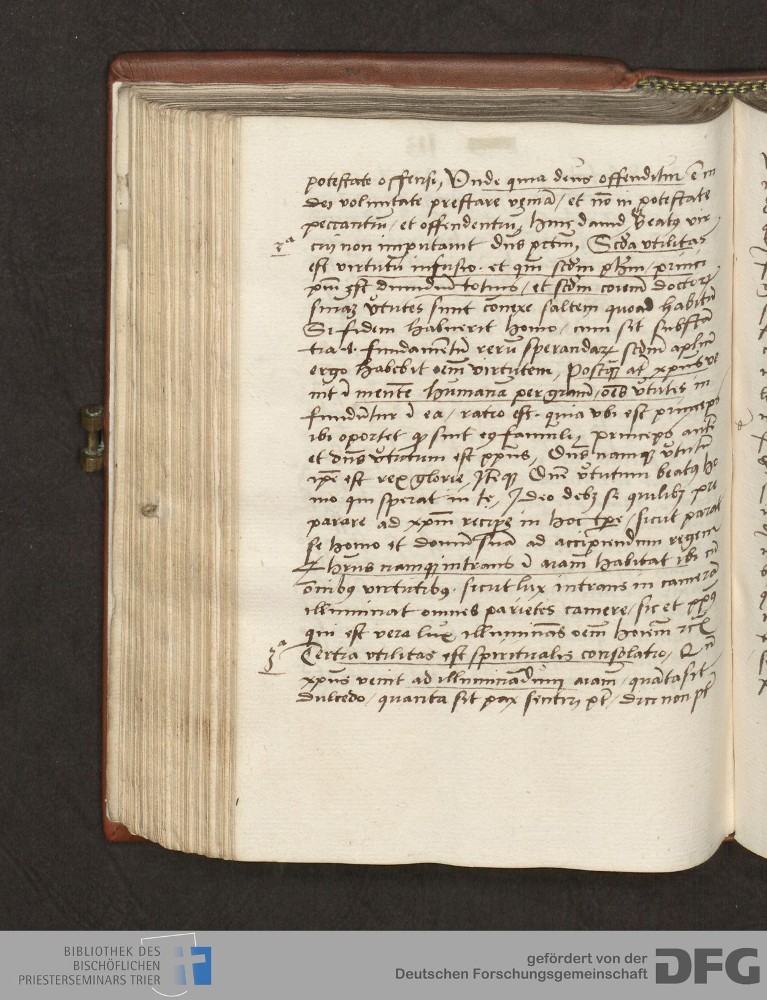 potestate offensi, Vnde quia deus offenditur ē in
dei voluntate prestare veniā / et nō in potestate
peccantiū / et offendentiū, hinc dauid Beatꝯ vir
2ᵃ
cui non imputauit dns pctm, Scḋa vtilitas
est virtutū infusio · et qm scḋm phm / princi
dimidiū totius / et scḋm coiem doctor
virtutes sunt conexe saltem quoad habitū
Si fidem habuerit homo / cum sit substā
tia · i · fundamētū rerū sperandaꝝ scḋm aplm
ergo habebit oēm virtutem, Postqꝫ at xpūs ve
nit ī mentē humanā per grām / oēs v̄tutes in
fundūtur ī ea / ratio est · quia vbi est princeps
ibi oportet ꝙ sint eꝯ famuli, princeps autē
et dn̄s v̄tutum est xpūs, Dn̄s namqꝫ v̄tutū
ipe est rex glorie, Itēqꝫ Dn̄e v̄tutum beatꝯ ho
mo qui sperat in te, Ideo debꝫ se quilibꝫ pre
parare ad xpm recipe in hoc tpe / sicut parat
se homo et domū suā ad accipiendum regem
Xhrūs namqꝫ intrans ī aīam habitat ibi cū
omībꝯ virtutibꝯ · sicut lux intrans in camerā
illuminat omnes parietes camere / sic et xpūs
qui est vera lux illuminās oēm hoīem
3ᵃ
Tertia vtilitas est spiritualis consolatio / Qn̄
xpūs venit ad illuminādum aīam / quāta sit
dulcedo / quanta sit pax sentiri pt / dici non pt
BIBLIOTHEK DES
BISCHÖFLICHEN
PRIESTERSEMINARS TRIER
gefördert von der
Deutschen Forschungsgemeinschaft
DFG